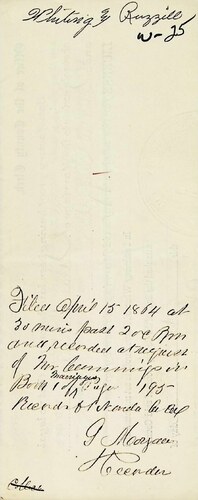 Whiting & Ruzzill
W-25
Filed April 15 1864 at
30 min's past 2 oc Pm
and recorded at request
of Wm Cummings in
Book 1 of Marriages Page 195
Records of Nevada Co Cal
G Morgan
Recorder